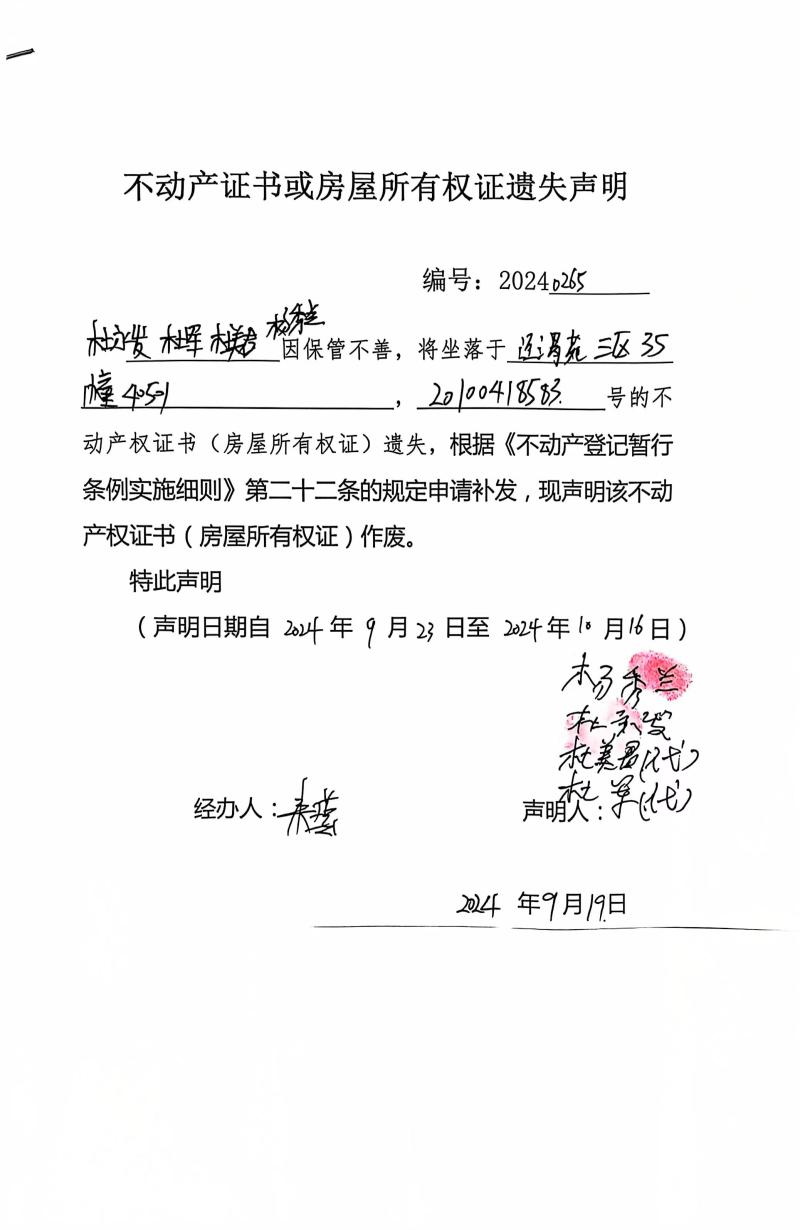 不动产证书或房屋所有权证遗失声明
编号：20240265
杜 杜军 杜美君 杨秀兰因保管不善，将坐落于 三区35
幢40501，20100418583 号的不
动产权证书（房屋所有权证）遗失，根据《不动产登记暂行
条例实施细则》第二十二条的规定申请补发，现声明该不动
产权证书（房屋所有权证）作废。
特此声明
（声明日期自 2024 年 9 月 23 日至 2024年 10 月 16 日）
杨秀兰
杜 发
杜美君（代）
杜军（代）
经办人：
声明人：
2024 年9月19日